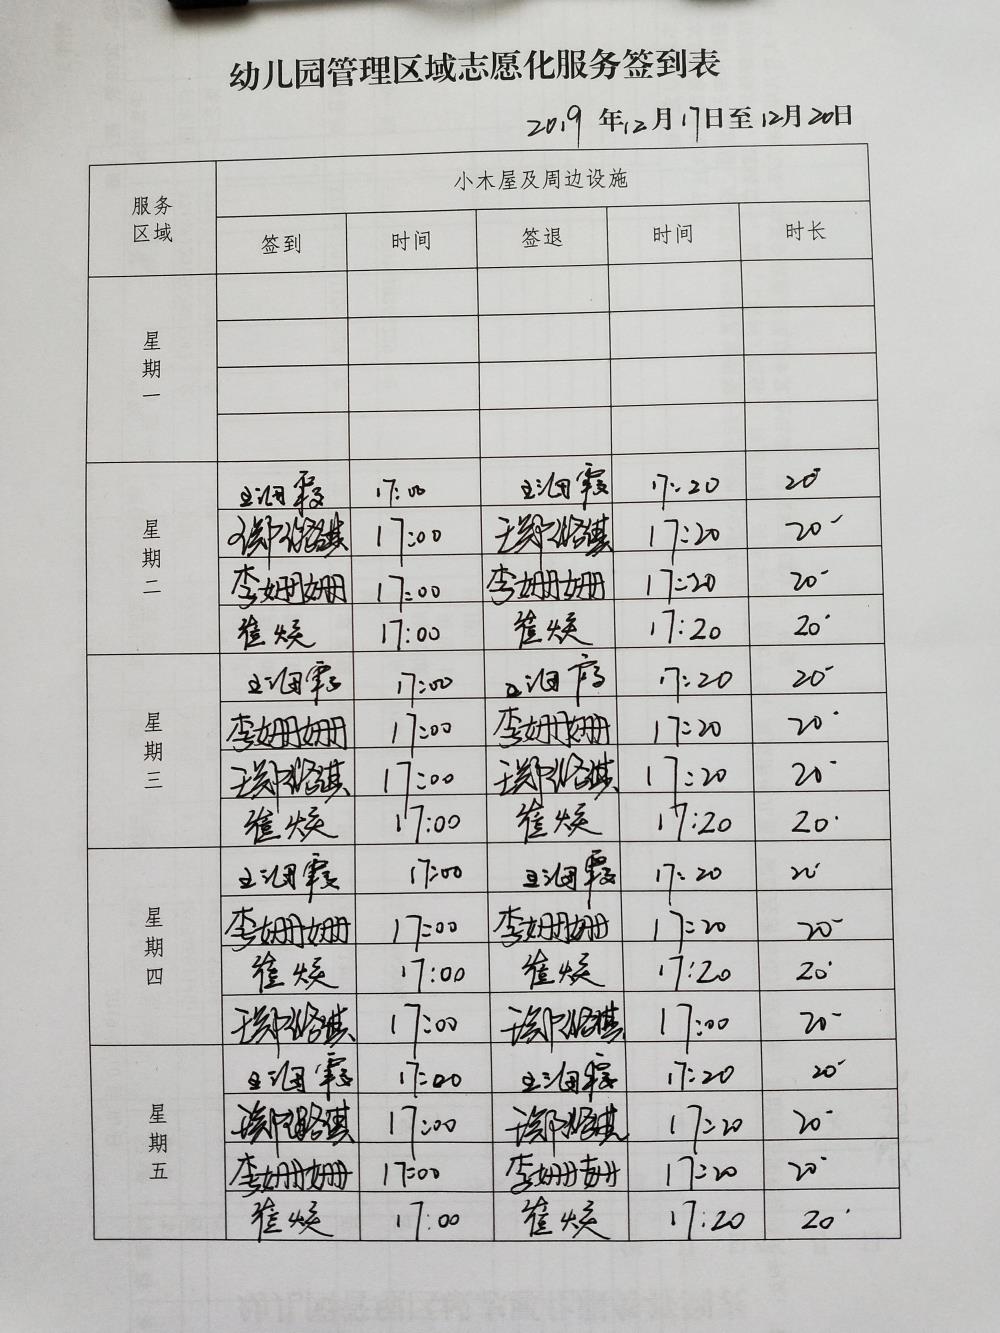 幼儿园管理区域志愿化服务签到表
2019 年12月17日至12月20日
服务区域 小木屋及周边设施
签到 时间 签退 时间 时长
星期一
星期二
王海霞 17:00 王海霞 17:20 20'
17:00 17:20 20'
李姗姗 17:00 李姗姗 17:20 20'
崔焕 17:00 崔焕 17:20 20'
星期三
王海霞 17:00 王海霞 17:20 20'
李姗姗 17:00 李姗姗 17:20 20'
17:00 17:20 20'
崔焕 17:00 崔焕 17:20 20'
星期四
王海霞 17:00 王海霞 17:20 20'
李姗姗 17:00 李姗姗 17:20 20'
崔焕 17:00 崔焕 17:20 20'
17:00 17:00 20'
星期五
王海霞 17:00 王海霞 17:20 20'
17:00 17:20 20'
李姗姗 17:00 李姗姗 17:20 20'
崔焕 17:00 崔焕 17:20 20'